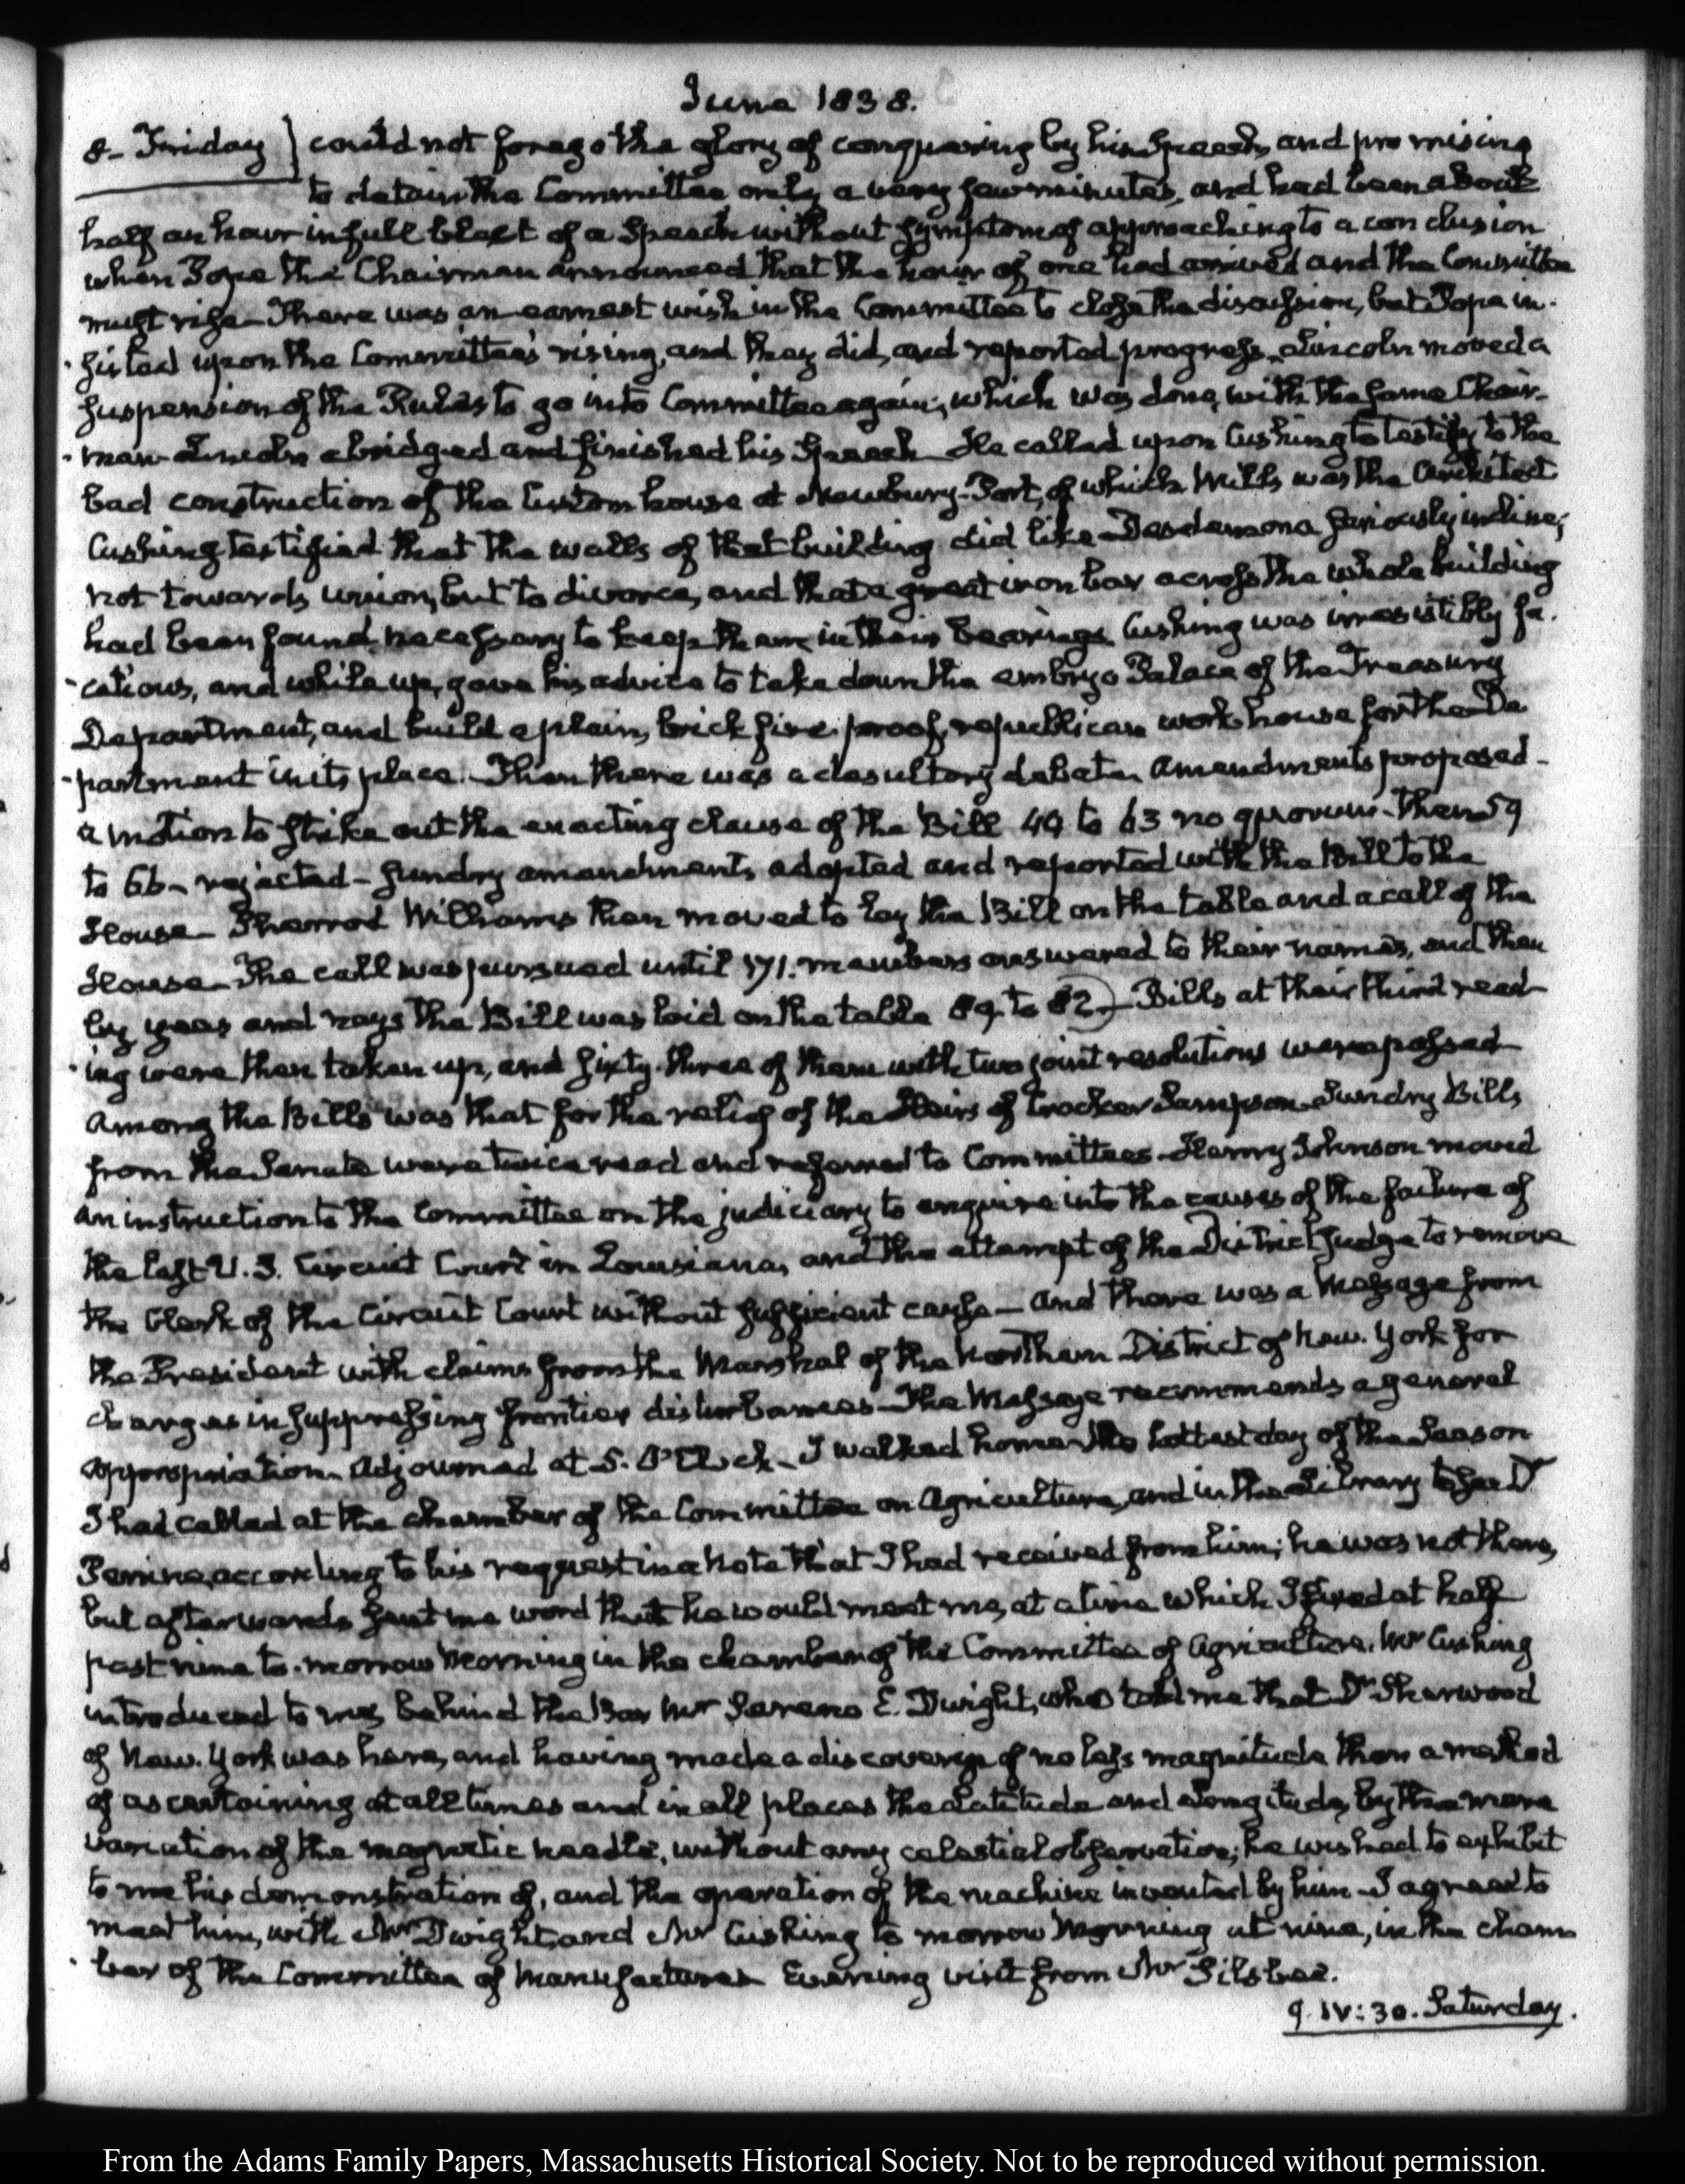 June 1838.
8. Friday } could not forego the glory of conquering by his Speech, and promising
to detain the Committee only a very few minutes, and had been about
half an hour in full blast of a Speech without symptom of approaching to a conclusion
when Pope the Chairman announced that the hour of one had arrived and the Committee
must rise. There was an earnest wish in the Committee to close the discussion, but Pope in-
sisted upon the Committee's rising, and they did, and reported progress. Lincoln moved a
suspension of the Rules to go into Committee again; which was done, with the same Chair-
man. Lincoln abridged and finished his Speech. He called upon Cushing to testify to the
bad construction of the Custom house at Newbury-Port, of which Mills was the Architect
Cushing testified that the walls of that building did like Desdemona seriously incline;
not towards union, but to divorce, and that a great iron bar across the whole building
had been found necessary to keep them in their bearings. Cushing was irresistibly fa-
cetious, and while up, gave his advice to take down the embryo Palace of the Treasury
Department, and build a plain, brick fire-proof, republican work house for the De
partment in its place. Then there was a desultory debate. Amendments proposed-
a motion to strike out the enacting clause of the Bill 49 to 63 no quorum- then 59
to 66- rejected- sundry amendments adopted and reported with the Bill to the
House. Sherrod Williams then moved to lay the Bill on the table and a call of the
House. The call was pursued until 171. members answered to their names, and then
by yeas and nays the Bill was laid on the table 89. to 82- Bills at their third read-
ing were then taken up, and sixty-three of them with two joint resolutions were passed
Among the Bills was that for the relief of the Heirs of Crocker Sampson. Sundry Bills
from the Senate were twice read and referred to Committees. Henry Johnson moved
an instruction to the Committee on the judiciary to enquire into the causes of the failure of
the last U.S. Circuit Court in Louisiana, and the attempt of the District Judge to remove
the Clerk of the Circuit Court without sufficient cause- and there was a Message from
the President with claims from the Marshal of the Northern District of New-York for
charges in suppressing frontier disturbances- The Message recommends a general
appropriation. Adjourned at 5. O'Clock. I walked home the hottest day of the Season
I had called at the chamber of the Committee on Agriculture, and in the Library to see Dr
Perrine, according to his request in a Note that I had received from him; he was not there,
but afterwards sent me word that he would meet me, at a time which I fixed at half
past nine to-morrow Morning in the chamber of the Committee of Agriculture. Mr Cushing
introduced to me, behind the Bar Mr Sereno E. Dwight, who told me that Dr Sherwood
of New-York was here, and having made a discovery of no less magnitude than a method
of ascertaining at all times and in all places the Latitude and Longitude, by the mere
variation of the magnetic needle, without any celestial observation; he wished to exhibit
to me his demonstration of, and the operation of the machine invented by him- I agreed to
meet him, with Mr Dwight, and Mr Cushing to morrow Morning at nine, in the cham
ber of the Committee of Manufactures Evening visit from Mr Silsbee.
9. IV:30. Saturday.
From the Adams Family Papers, Massachusetts Historical Society. Not to be reproduced without permission.